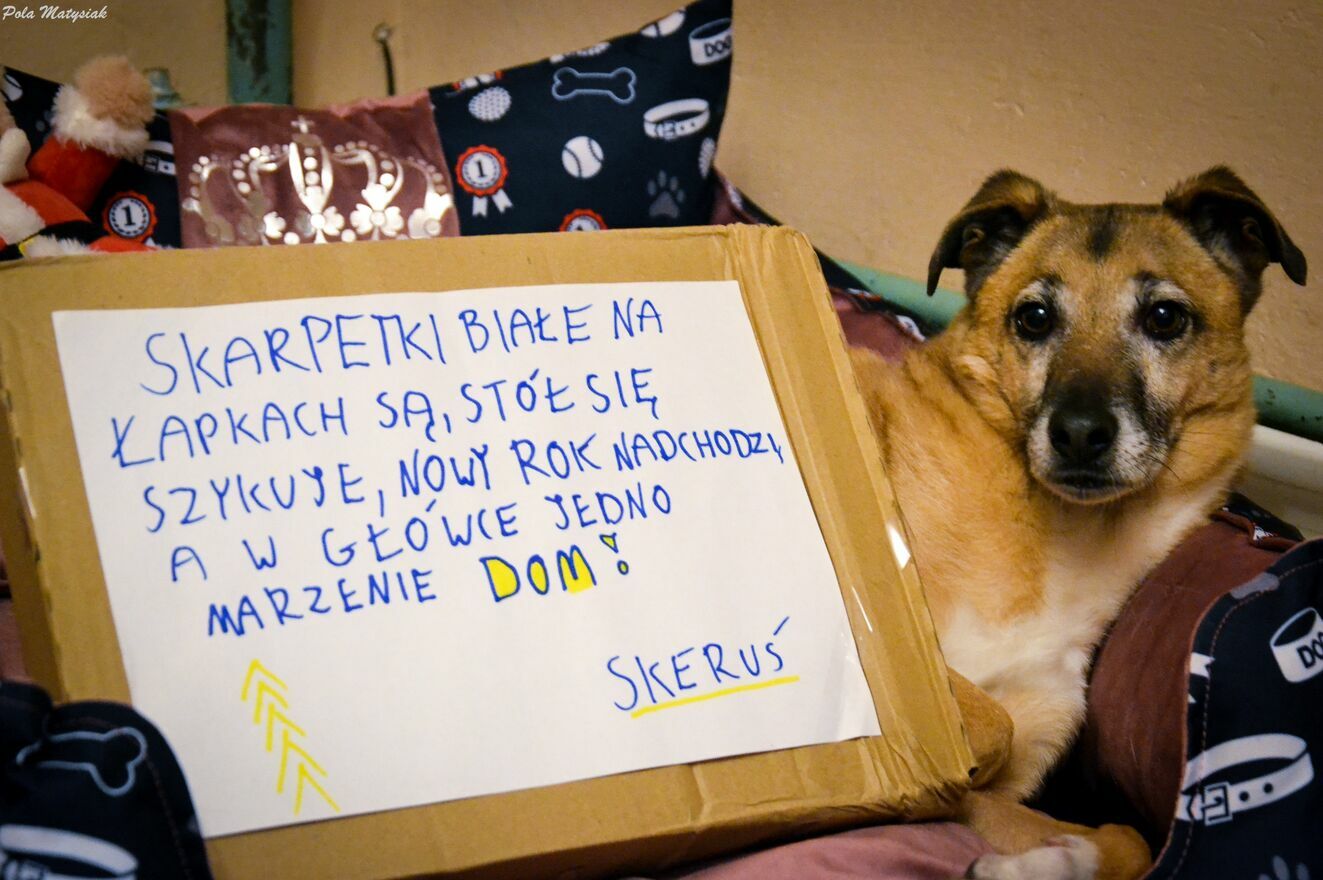 Pola Matysiak
DOG
1
1
SKARPETKI BIAŁE NA
ŁAPKACH SĄ, STÓŁ SIĘ
SZYKUJE, NOWY ROK NADCHODZI,
A W GŁÓWCE JEDNO
MARZENIE DOM!
SKERUŚ
DOG